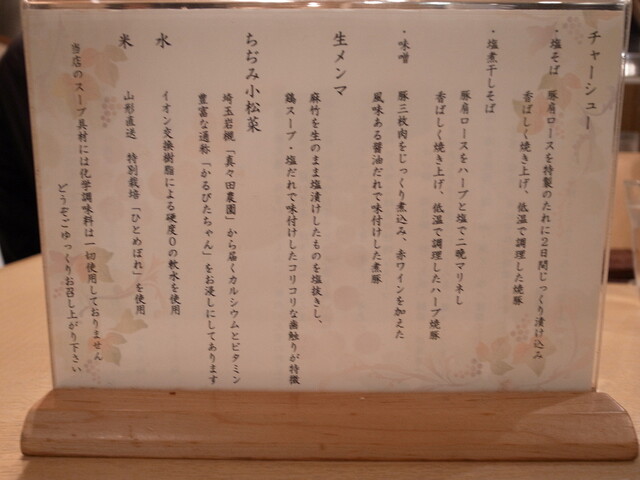 チャーシュー
・塩そば 豚肩ロースを特製のたれに2日間じっくり漬け込み
香ばしく焼き上げ、低温で調理した焼豚
・塩煮干しそば
豚肩ロースをハーブと塩で二晩マリネし
香ばしく焼き上げ、低温で調理したハーブ焼豚
・味噌 豚三枚肉をじっくり煮込み、赤ワインを加えた
風味ある醤油だれで味付けした煮豚
生メンマ
麻竹を生のまま塩漬けしたものを塩抜きし、
鶏スープ・塩だれで味付けしたコリコリな歯触りが特徴
ちぢみ小松菜
埼玉岩槻「真々田農園」から届くカルシウムとビタミン
豊富な通称「かるびたちゃん」をお浸しにしてあります
水 イオン交換樹脂による硬度0の軟水を使用
米 山形直送 特別栽培「ひとめぼれ」を使用
当店のスープ具材には化学調味料は一切使用しておりません
どうぞごゆっくりお召し上がり下さい